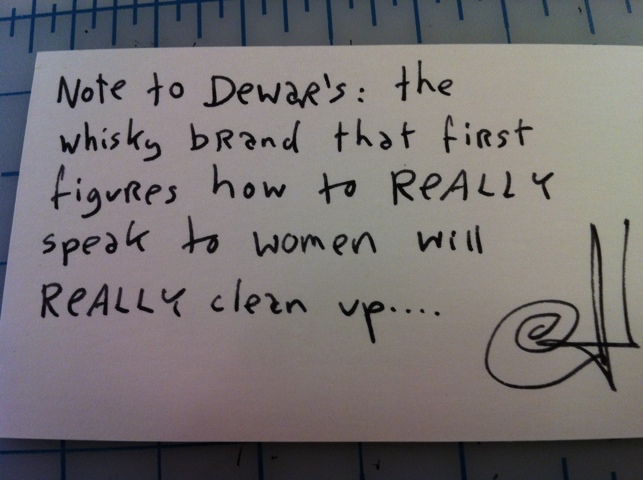 Note to Dewar's: the
whisky brand that first
figures how to REALLY
speak to women will
REALLY clean up....